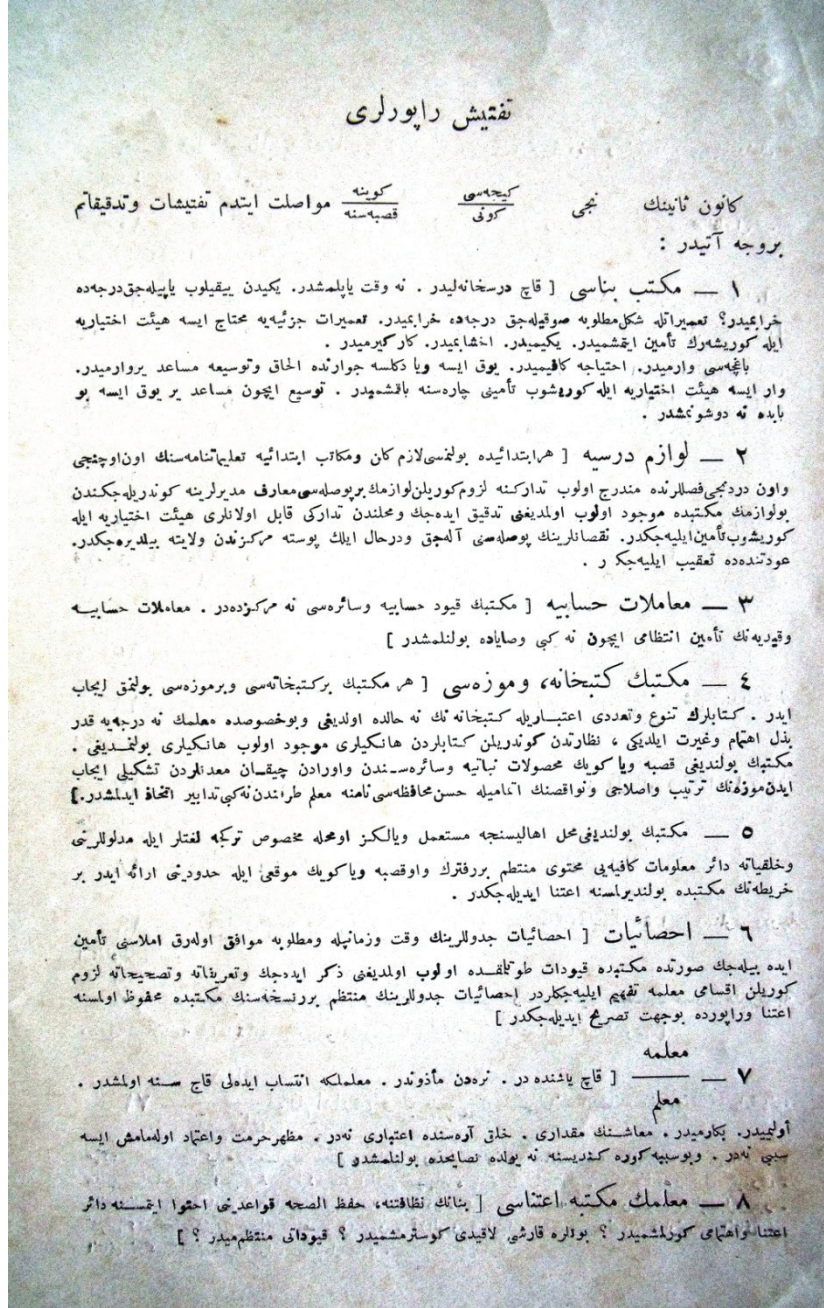 تفتيش راپورلری
كانون ثانينك نجی كيجه‌سی كونی كوينه قصبه‌سنه مواصلت ايتدم تفتيشات وتدقيقاتم
بروجه آتيدر :
١ — مكتب بناسی [ قاچ درسخانه‌ليدر . نه وقت ياپلمشدر. يكيدن ييقيلوب ياپيله‌جق‌درجه‌ده
خرابميدر؟ تعميراتله شكل‌مطلوبه صوقيله‌جق درجه‌ده خرابميدر. تعميرات جزئيه‌يه محتاج ايسه هيئت اختياريه
ايله كوريشه‌رك تأمين ايتمشميدر. يكيميدر. اخشابميدر. كاركيرميدر .
باغچه‌سی وارميدر. احتياجه كافيميدر. يوق ايسه ويا دكلسه جوارنده الحاق وتوسيعه مساعد يروارميدر.
وار ايسه هيئت اختياريه ايله كوريشوب تأمينی چاره‌سنه باقمشميدر . توسيع ايچون مساعد ير يوق ايسه بو
بابده نه دوشونمشدر .
٢ — لوازم درسيه [ هرابتدائيده بولنمسی‌لازم كان ومكاتب ابتدائيه تعليماتنامه‌سنك اون‌اوچنجی
واون دردنجی‌فصللرنده مندرج اولوب تداركنه لزوم‌كوريلن‌لوازمك‌بربوصله‌سی‌معارف مديرلرينه كوندريله‌جكندن
بولوازمك مكتبده موجود اولوب اولمديغنی تدقيق ايده‌جك ومحلندن تداركی قابل اولانلری هيئت اختياريه ايله
كوريشوب‌تأمين‌ايليه‌جكدر. نقصانلرينك پوصله‌سنی آله‌جق ودرحال ايلك پوسته مركزندن ولايته بيلديره‌جكدر.
عودتنده‌ده تعقيب ايليه‌جكد ر .
٣ — معاملات حسابيه [ مكتبك قيود حسابيه وسائره‌سی نه مركزده‌در . معاملات حسابيـه
وقيديه‌نك تأمين انتظامی ايچون نه كبی وصاياده بولنلمشدر ]
٤ — مكتبك كتبخانه، وموزه‌سی [ هر مكتبك بركتبخانه‌سی وبرموزه‌سی بولنمق ايجاب
ايدر . كتابلرك تنوع وتعددی اعتباريله كتبخانه نك نه حالده اولديغی وبوخصوصده معلمك نه درجه‌يه قدر
بذل اهتمام وغيرت ايلديكی ، نظارتدن كوندريلن كتابلردن هانكيلری موجود اولوب هانكيلری بولنمديغی .
مكتبك بولنديغی قصبه ويا كويك محصولات نباتيه وسائره‌سندن واورادن چيقان معدنلردن تشكيلی ايجاب
ايدن‌موزه‌نك ترتيب واصلاحی ونواقصنك اتماميله حسن‌محافظه‌سی‌نامنه معلم طرفندن‌نه‌كبی‌تدابير اتخاذ ايدلمشدر.]
٥ — مكتبك بولنديغی‌محل اهاليسنجه مستعمل ويالكز اومحله مخصوص تركجه لغتلر ايله مدلوللرينی
وخلقياته دائر معلومات كافيه‌يی محتوی منتظم بردفترك واوقصبه وياكويك موقعی ايله حدودينی ارائه ايدر بر
خريطه‌نك مكتبده بولنديرلمسنه اعتنا ايديله‌جكدر .
٦ — احصائيات [ احصائيات جدوللرينك وقت وزمانيله ومطلوبه موافق اوله‌رق املاسنی تأمين
ايده بيله‌جك صورتده مكتبده قيودات طوتلمقده اولوب اولمديغنی ذكر ايده‌جك وتعريفاته وتصحيحاته لزوم
كوريلن اقسامی معلمه تفهيم ايليه‌جكلردر احصائيات جدوللرينك منتظم بررنسخه‌سنك مكتبده محفوظ اولمسنه
اعتنا وراپورده بوجهت تصريح ايديله‌جكدر ]
٧ — معلمه معلم [ قاچ ياشنده در . نره‌دن مأذوندر . معلملكه انتساب ايده‌لی قاچ سنه اولمشدر .
أوليميدر. بكارميدر . معاشنك مقداری . خلق آره‌سنده اعتباری نه‌در . مظهرحرمت واعتماد اوله‌مامش ايسه
سببی نه‌در . وبوسببه كوره كنديسنه نه يولده نصايحده بولنلمشدر ]
٨ — معلمك مكتبه اعتناسی [ بنانك نظافتنه، حفظ الصحه قواعدينی احتوا ايتمسنه دائر
اعتنا واهتمامی كورلمشميدر ؟ بونلره قارشی لاقيدی كوسترمشميدر ؟ قيوداتی منتظم‌ميدر ؟ ]